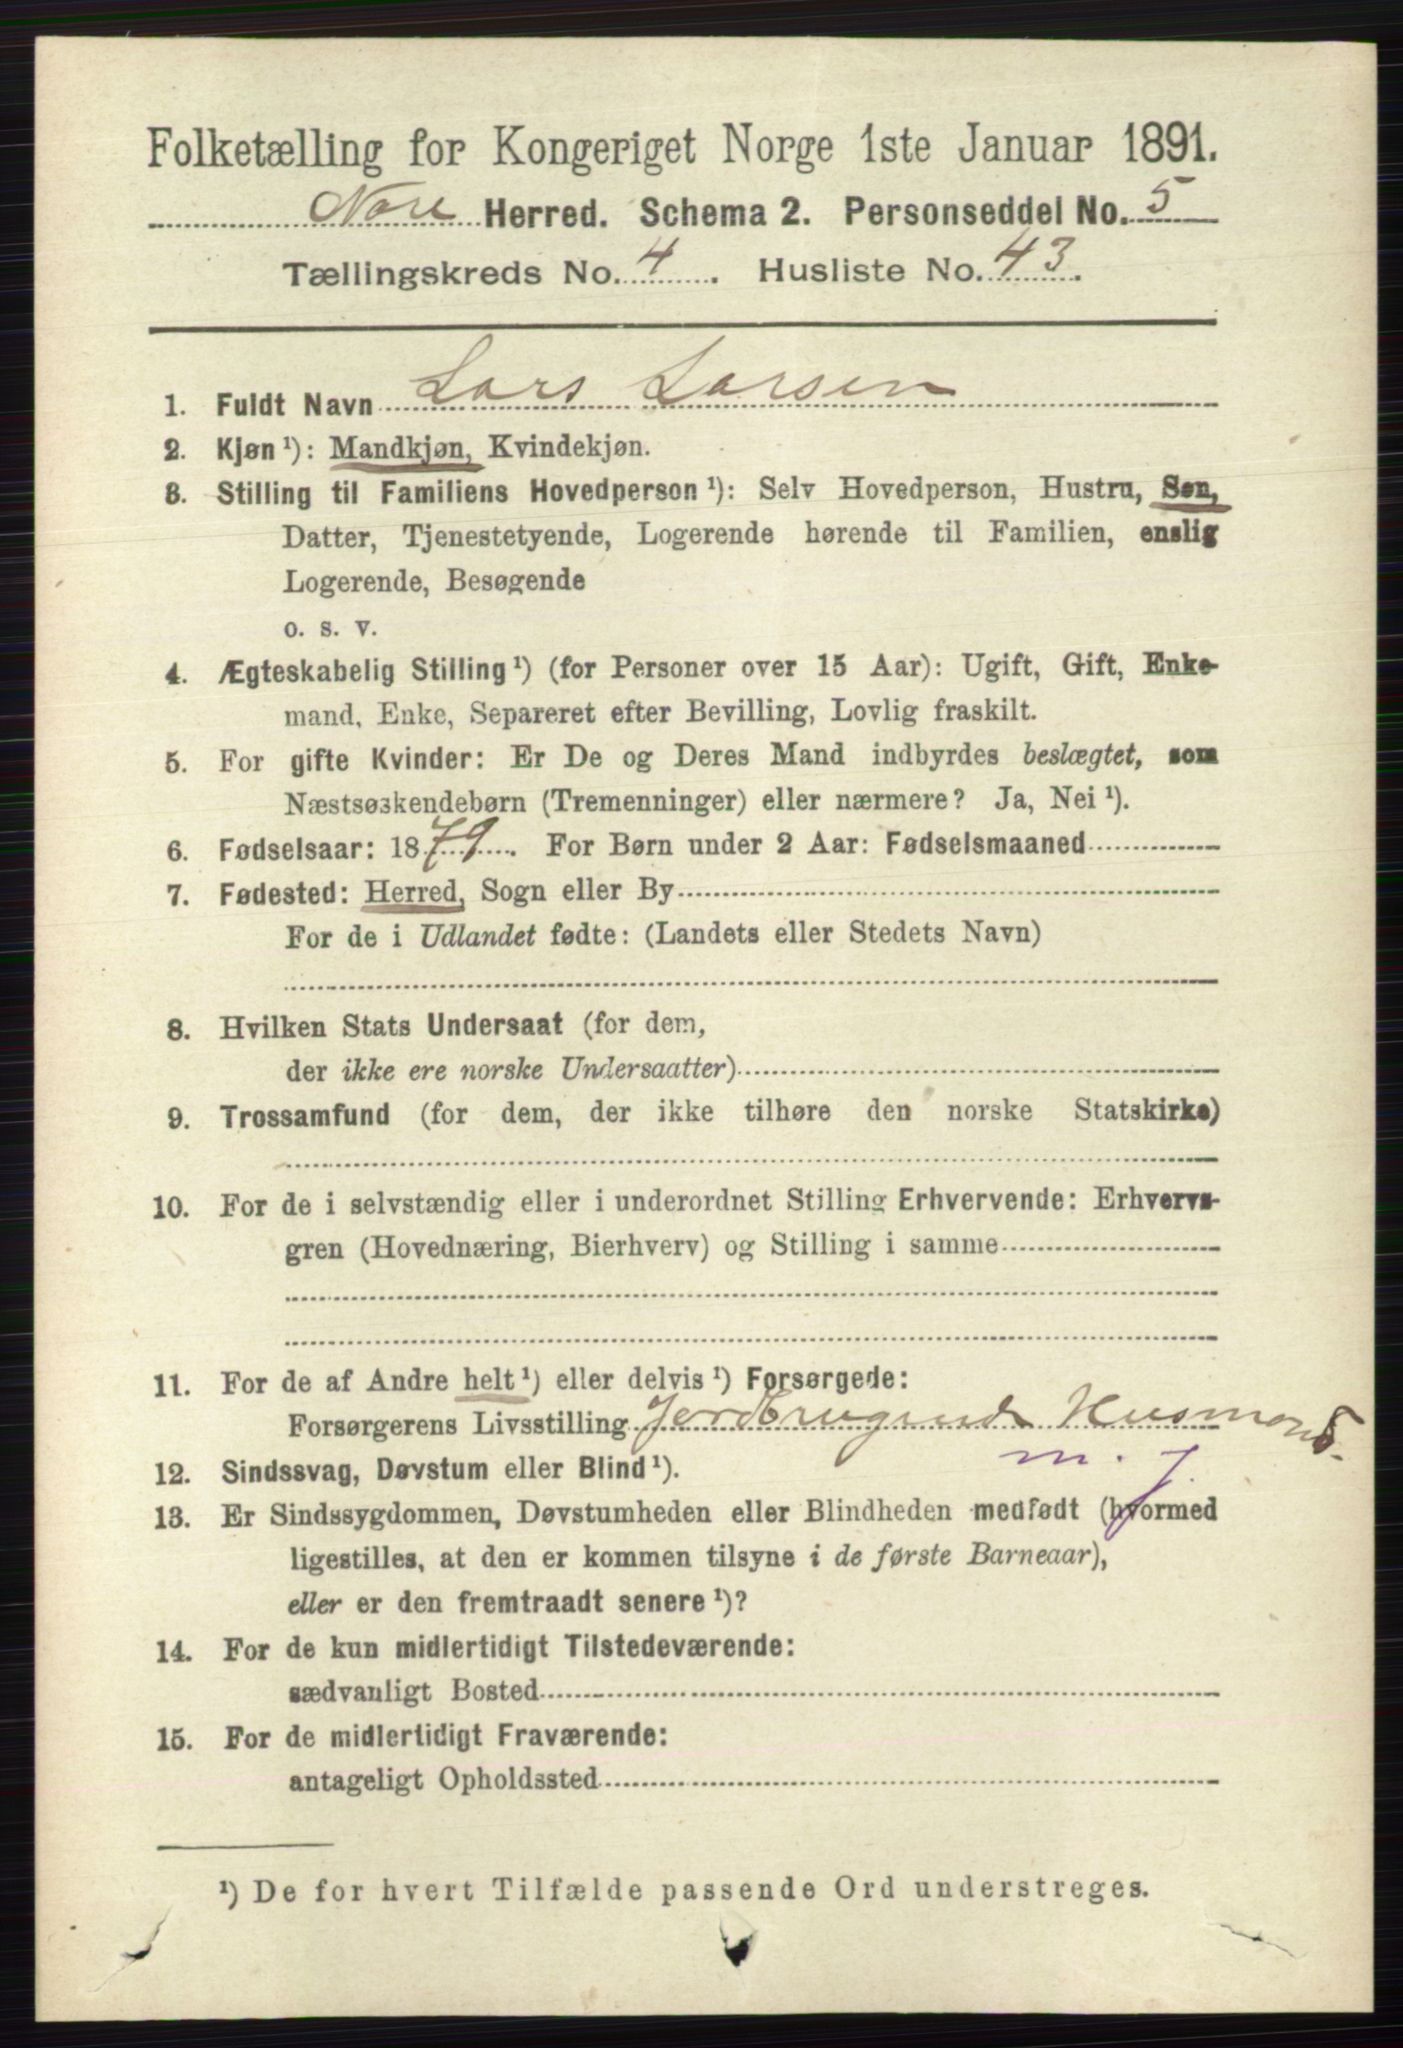 Folketælling for Kongeriget Norge 1ste Januar 1891.
Nore Herred. Schema 2. Personseddel No. 5
Tællingskreds No. 4. Husliste No. 43.
1. Fuldt Navn Lars Larsen
2. Kjøn ¹): Mandkjøn, Kvindekjøn.
3. Stilling til Familiens Hovedperson ¹): Selv Hovedperson, Hustru, Søn,
Datter, Tjenestetyende, Logerende hørende til Familien, enslig
Logerende, Besøgende
o. s. v.
4. Ægteskabelig Stilling ¹) (for Personer over 15 Aar): Ugift, Gift, Enke-
mand, Enke, Separeret efter Bevilling, Lovlig fraskilt.
5. For gifte Kvinder: Er De og Deres Mand indbyrdes beslægtet, som
Næstsøskendebørn (Tremenninger) eller nærmere? Ja, Nei ¹).
6. Fødselsaar: 1879. For Børn under 2 Aar: Fødselsmaaned
7. Fødested: Herred, Sogn eller By
For de i Udlandet fødte: (Landets eller Stedets Navn)
8. Hvilken Stats Undersaat (for dem,
der ikke ere norske Undersaatter)
9. Trossamfund (for dem, der ikke tilhøre den norske Statskirke)
10. For de i selvstændig eller i underordnet Stilling Erhvervende: Erhvervs-
gren (Hovednæring, Bierhverv) og Stilling i samme
11. For de af Andre helt ¹) eller delvis ¹) Forsørgede:
Forsørgerens Livsstilling Jordbrugende Husmand.
m. J.
12. Sindssvag, Døvstum eller Blind ¹).
13. Er Sindssygdommen, Døvstumheden eller Blindheden medfødt (hvormed
ligestilles, at den er kommen tilsyne i de første Barneaar),
eller er den fremtraadt senere ¹)?
14. For de kun midlertidigt Tilstedeværende:
sædvanligt Bosted
15. For de midlertidigt Fraværende:
antageligt Opholdssted
¹) De for hvert Tilfælde passende Ord understreges.